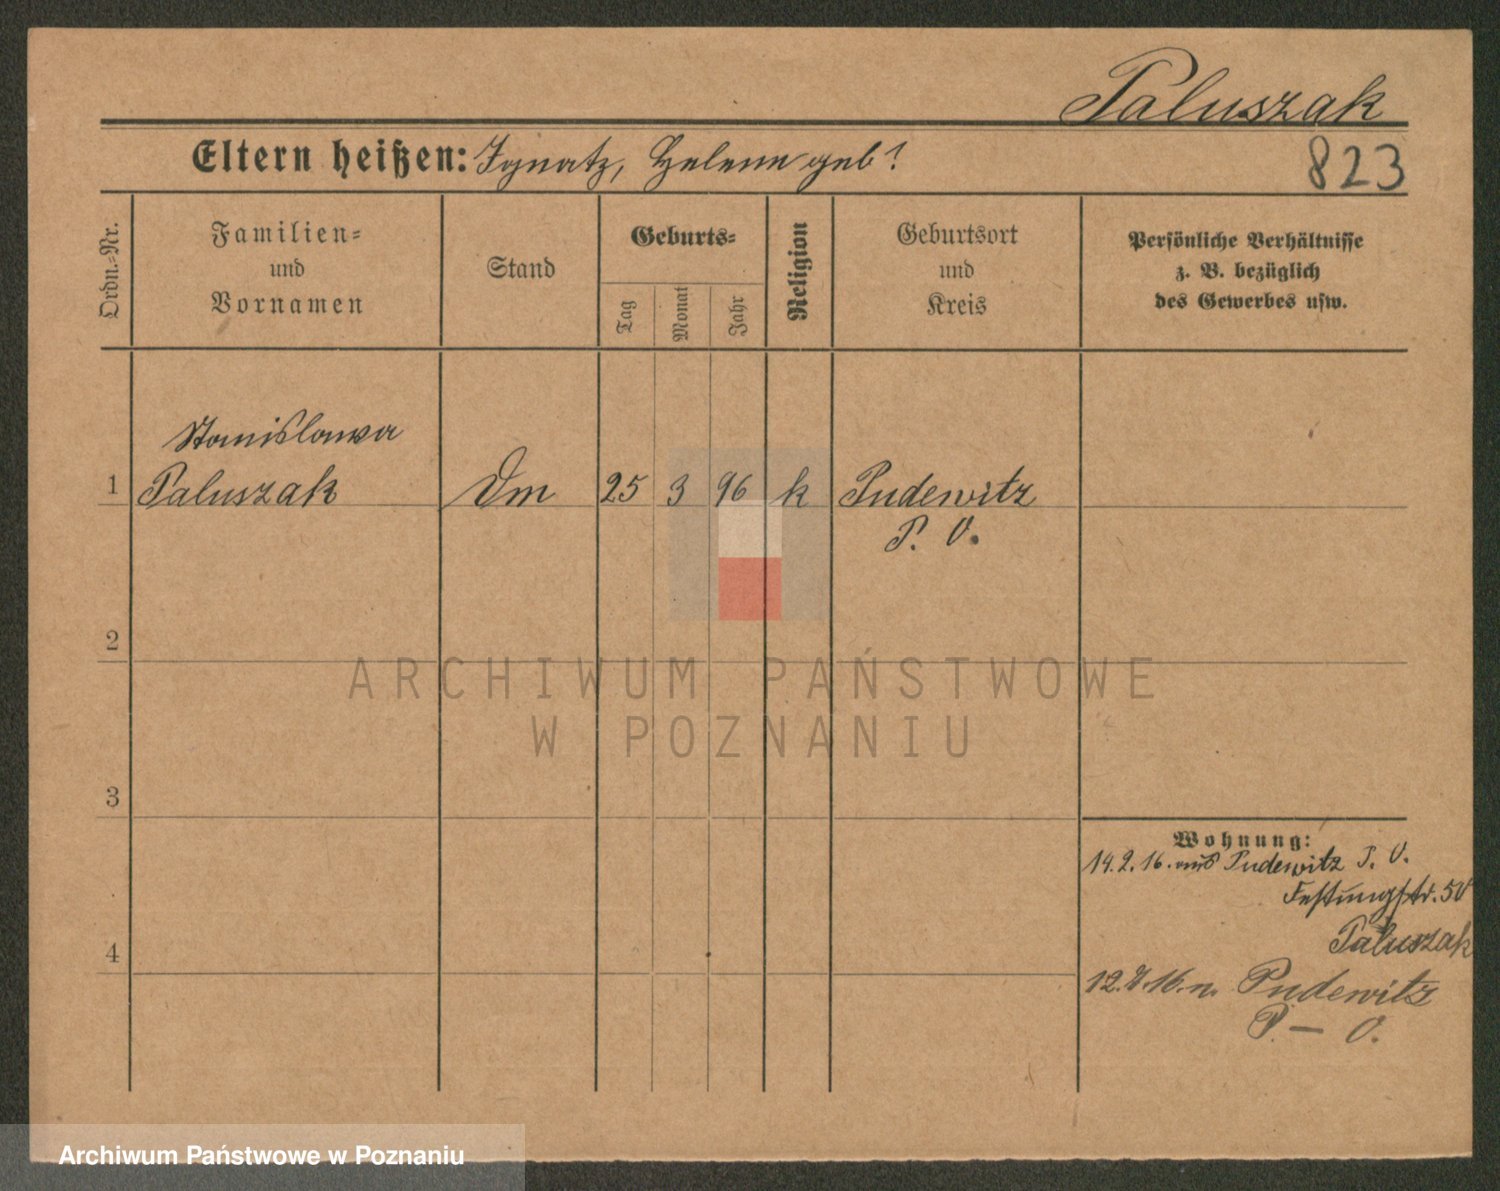 Paluszak
Eltern heißen: Ignatz, Helene geb?
823
Ordn.-Nr.
Familien-
und
Vornamen
Stand
Geburts-
Tag
Monat
Jahr
Religion
Geburtsort
und
Kreis
Persönliche Verhältnisse
z. B. bezüglich
des Gewerbes usw.
Stanislawa
1 Paluszak Dm 25 3 96 k Pudewitz
P. O.
2
3
4
Wohnung:
14. 2. 16. aus Pudewitz P. O.
Festungstr. 5
Paluszak
12. 16. n. Pudewitz
P. – O.
ARCHIWUM PAŃSTWOWE
W POZNANIU
Archiwum Państwowe w Poznaniu